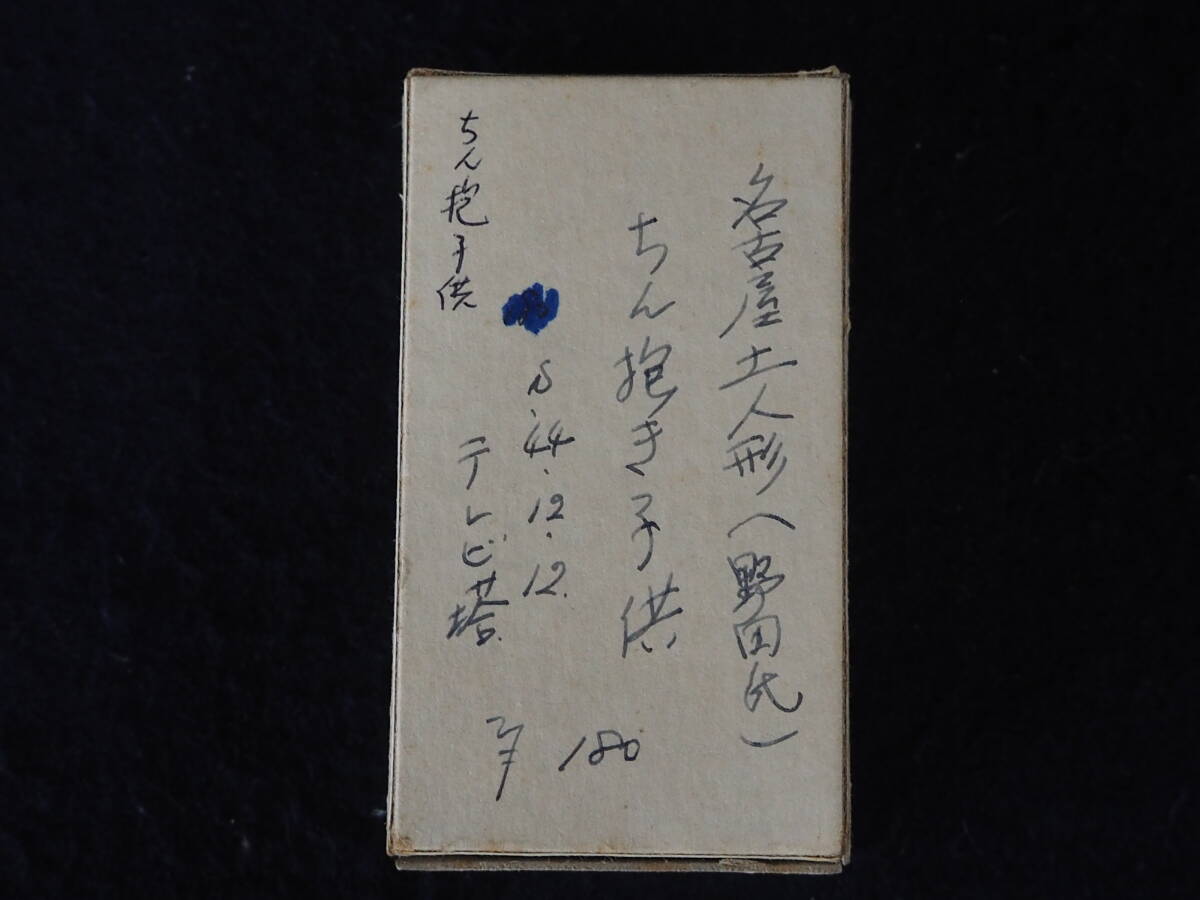 名古屋土人形(野田氏)
ちん抱き子供
S.44.12.12.
テレビ塔.
ちん抱子供
¥180